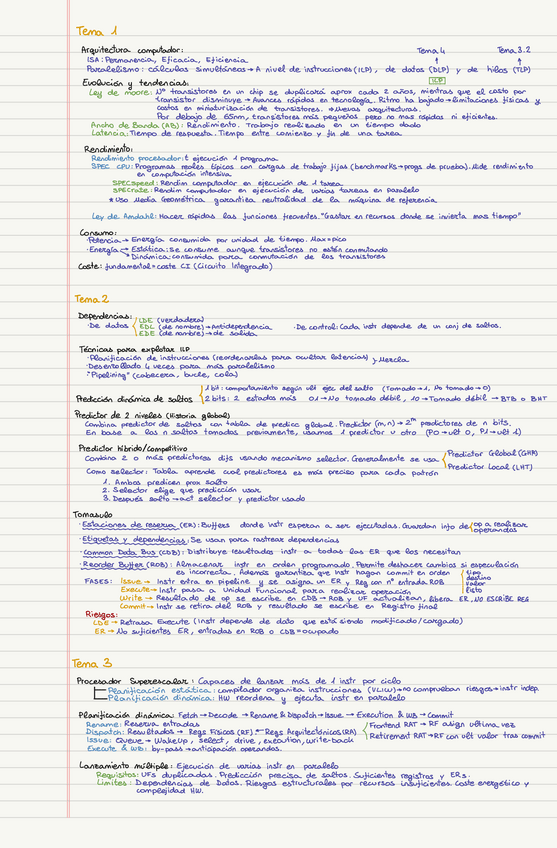 Tema 1
Arquitectura computador:
ISA: Permanencia, Eficacia, Eficiencia
Tema 4
Tema 3.2
Paralelismo: cálculos simultáneos → A nivel de instrucciones (ILP), de datos (DLP) y de hilos (TLP)
ILP
Evolución y tendencias:
Ley de moore: Nº transistores en un chip se duplicará aprox cada 2 años, mientras que el costo por
transistor disminuye → Avances rápidos en tecnología. Ritmo ha bajado → limitaciones físicas y
costos en miniaturización de transistores. → Nuevas arquitecturas.
Por debajo de 65nm, transistores más pequeños pero no mas rápidos ni eficientes.
Ancho de Banda (AB): Rendimiento. Trabajo realizado en un tiempo dado
Latencia: Tiempo de respuesta. Tiempo entre comienzo y fin de una tarea
Rendimiento:
Rendimiento procesador: t ejecución 1 programa
SPEC CPU: Programas reales típicos con cargas de trabajo fijas (benchmarks → progs de prueba). Mide rendimiento
en computación intensiva
SPECspeed: Rendim computador en ejecución de 1 tarea
SPECrate: Rendim computador en ejecución de varias tareas en paralelo
* Uso Media Geométrica garantiza neutralidad de la máquina de referencia
Ley de Amdahl: Hacer rápidas las funciones frecuentes. "Gastar en recursos donde se invierta mas tiempo"
Consumo:
· Potencia → Energía consumida por unidad de tiempo. Max = pico
· Energía → Estática: se consume aunque transistores no estén conmutando
→ Dinámica: consumida para conmutación de los transistores
Coste: fundamental = coste CI (Circuito Integrado)
Tema 2
Dependencias:
· De datos
LDE (verdadera)
EDL (de nombre) → Antidependencia
EDE (de nombre) → de salida
· De control: Cada instr depende de un conj de saltos.
Técnicas para explotar ILP
· Planificación de instrucciones (reordenarlas para ocultar latencias)
· Desenrollado 4 veces para más paralelismo
Mezcla
· "Pipelining" (cabecera, bucle, cola)
Predicción dinámica de saltos
1 bit: comportamiento según ult ejec del salto (Tomado → 1, No tomado → 0)
2 bits: 2 estados más 01 → No tomado débil, 10 → Tomado débil → BTB o BHT
Predictor de 2 niveles (Historia global)
Combina predictor de saltos con tabla de predicc global. Predictor (m,n) → 2^m predictores de n bits.
En base a los n saltos tomados previamente, usamos 1 predictor u otro (P0 → ult 0, P1 → ult 1)
Predictor híbrido/competitivo
Combina 2 o más predictores difs usando mecanismo selector. Generalmente se usa
Predictor Global (GHR)
Predictor Local (LHT)
Como selector: Tabla aprende cual predictores es más preciso para cada patrón
1. Ambos predicen prox salto
2. Selector elige que predicción usar
3. Después salto → act selector y predictor usado
Tomasulo
· Estaciones de reserva (ER): Buffers donde instr esperan a ser ejecutadas. Guardan info de
op a realizar
operandos
· Etiquetas y dependencias: Se usan para rastrear dependencias
· Common Data Bus (CDB): Distribuye resultados instr a todas las ER que los necesitan
· Reorder Buffer (ROB): Almacenar instr en orden programado. Permite deshacer cambios si especulación
es incorrecta. Además garantiza que instr hagan commit en orden
tipo
destino
valor
listo
FASES: Issue → Instr entra en pipeline y se asigna un ER y Reg con nº entrada ROB
Execute → Instr pasa a Unidad Funcional para realizar operación
Write → Resultado de op se escribe en CDB → ROB y UF actualizan, libera ER, NO ESCRIBE REG
Commit → Instr se retira del ROB y resultado se escribe en Registro final
Riesgos:
LDE → Retrasa Execute (instr depende de dato que está siendo modificado/cargado)
ER → No suficientes ER, entradas en ROB o CDB = ocupado
Tema 3
Procesador Superescalar: Capaces de lanzar más de 1 instr por ciclo
Planificación estática: compilador organiza instrucciones (VLIW) → no comprueban riesgos → instr indep.
Planificación dinámica: HW reordena y ejecuta instr en paralelo
Planificación dinámica: Fetch → Decode → Rename & Dispatch → Issue → Execution & WB → Commit
Rename: Reserva entradas
Dispatch: Resultados → Regs Físicos (RF) → Regs Arquitectónicos (RA)
Issue: Queue → WakeUp, select, drive, execution, write-back
Execute & WB: by-pass → anticipación operandos.
Frontend RAT → RF asign ultima vez
Retirement RAT → RF con valor tras commit
Lanzamiento múltiple: Ejecución de varias instr en paralelo
Requisitos: UFs duplicadas. Predicción precisa de saltos. Suficientes registros y ERs.
Límites: Dependencias de Datos. Riesgos estructurales por recursos insuficientes. Coste energético y
complejidad HW.